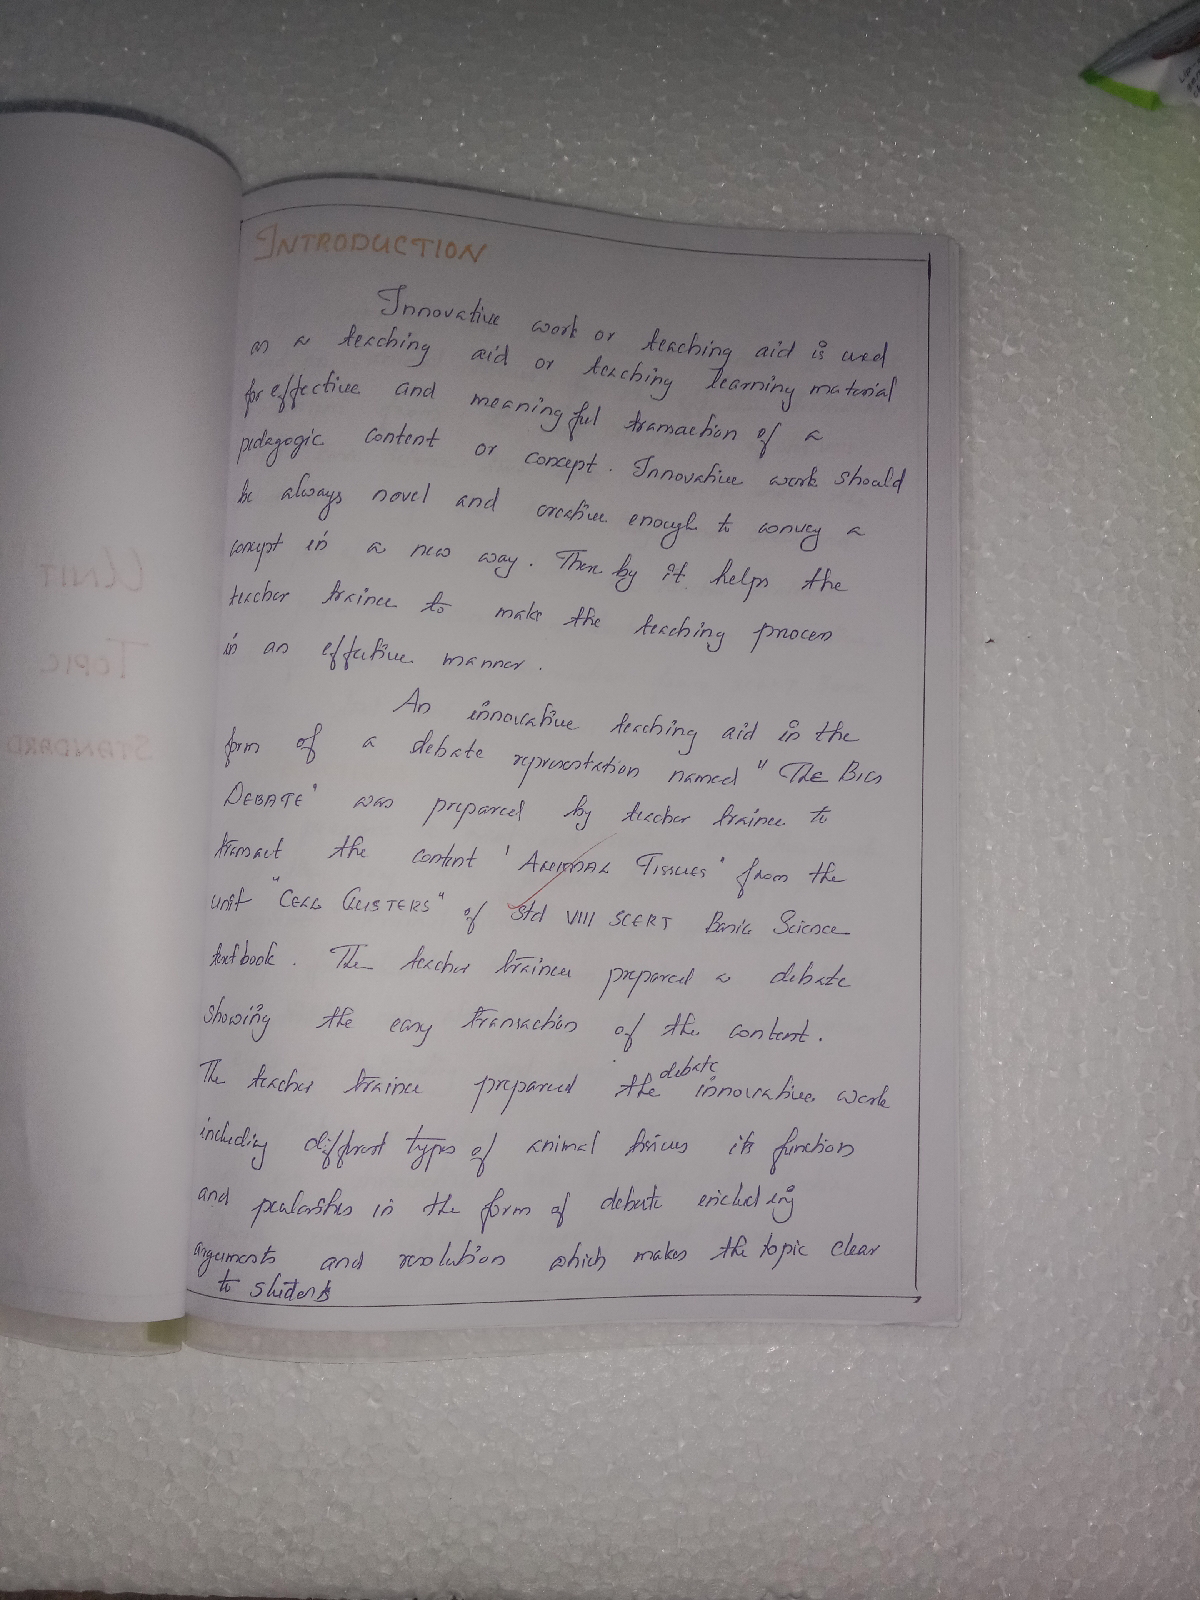 INTRODUCTION
Innovative work or teaching aid is used
as a teaching aid or teaching learning material
for effective and meaningful transaction of a
pedagogic content or concept. Innovative work should
be always novel and creative enough to convey a
concept in a new way. There by it helps the
teacher trainee to make the teaching process
in an effective manner.
An innovative teaching aid in the
form of a debate representation named "THE BIG
DEBATE" was prepared by teacher trainee to
transact the content 'ANIMAL TISSUES' from the
unit "CELL CLUSTERS" of Std VIII SCERT Basic Science
textbook. The teacher trainee prepared a debate
showing the easy transaction of the content.
The teacher trainee prepared the debate innovative work
including different types of animal tissues its function
and peculiarities in the form of debate including
arguments and resolution which makes the topic clear
to students
UNIT
TOPIC
STANDARD